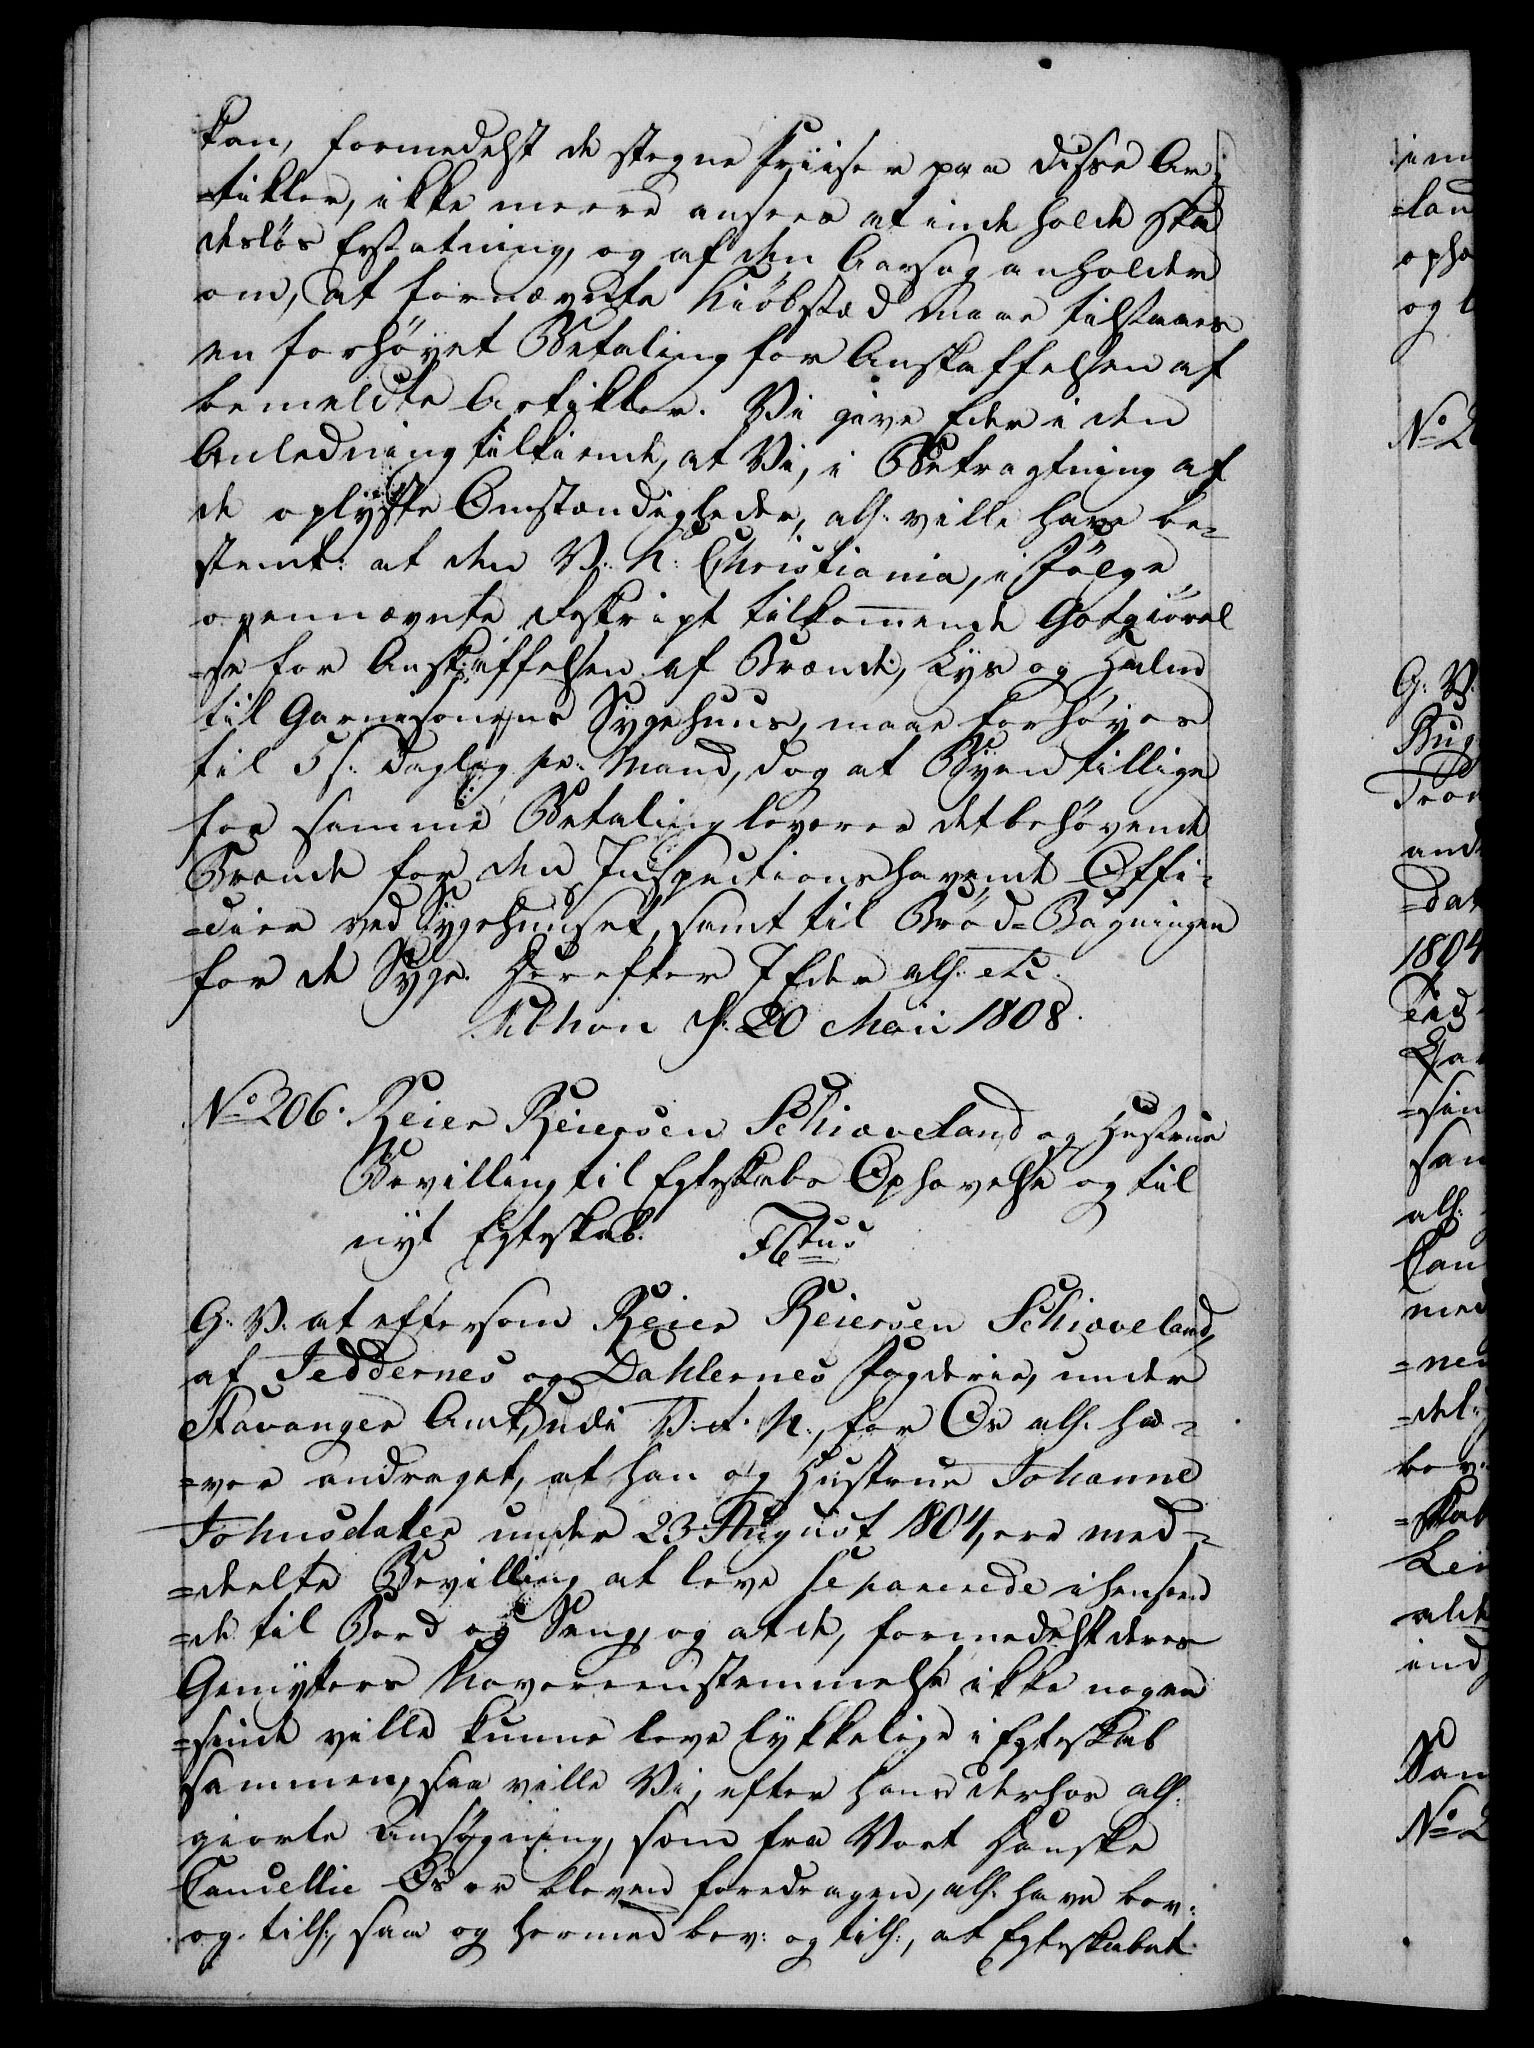 kan, formedelst de stegne Priiser paa disse Ar-
=tikler, ikke meere ansees at inde holde ska
desløs Erstatning, og af den Aarsag anholder
om, at fornævnte Kiøbstæd maae tilstaaes
en forhøyet Betaling for Anskaffelsen af
bemeldte Artikler. Vi give Eder i den
Anledning tilkiende, at Vi, i Betragtning af
de oplyste Omstændigheder, alf. ville have be-
stemt: at den V. K: Christiania, i Følge
ovennævnte Reskript tilkommende Godtgiørel
=se for Anskaffelsen af Brænde, Lys og Halm
til Garnisonens Sygehuus, maae forhøyes
til 5 s. daglig pr. Mand, dog at Byen tillige
for samme Betaling leverer det behøvende
Brænde for den Inspectionshavende Offi-
=cier ved Sygehuuset, samt til Brød-Bagningen
for de Syge. Herefter I Eder alf. etc.
Kbhvn d. 20 Maii 1808.
No 206. Reier Reiersen Schiæveland og Hustrue
Bevilling til Egteskabs Ophævelse og til
nyt Egteskab. Fbtus
G. V. at eftersom Reier Reiersen Schiæveland,
af Jeddernes og Dahlernes Fogderie, under
Stavanger Amt, udi V. R. N., for Os alf. ha-
=ver andraget, at han og Hustrue Johanne
Johnsdatter under 23 August 1804, ere med-
=deelte Bevilling at leve separerede i henseen
=de til Bord og Seng, og at de, formedelst deres
Gemytters Uovereenstemmelse ikke nogen
=sinde ville kunne leve lykkelige i Egteskab
sammen, saa ville Vi, efter hans derhos alf.
giorte Ansøgning, som fra Vort Danske
Cancellie Os er bleven foredragen, alf. have bev:
og tilf:, saa og hermed bev: og tilf:, at Egteskabet